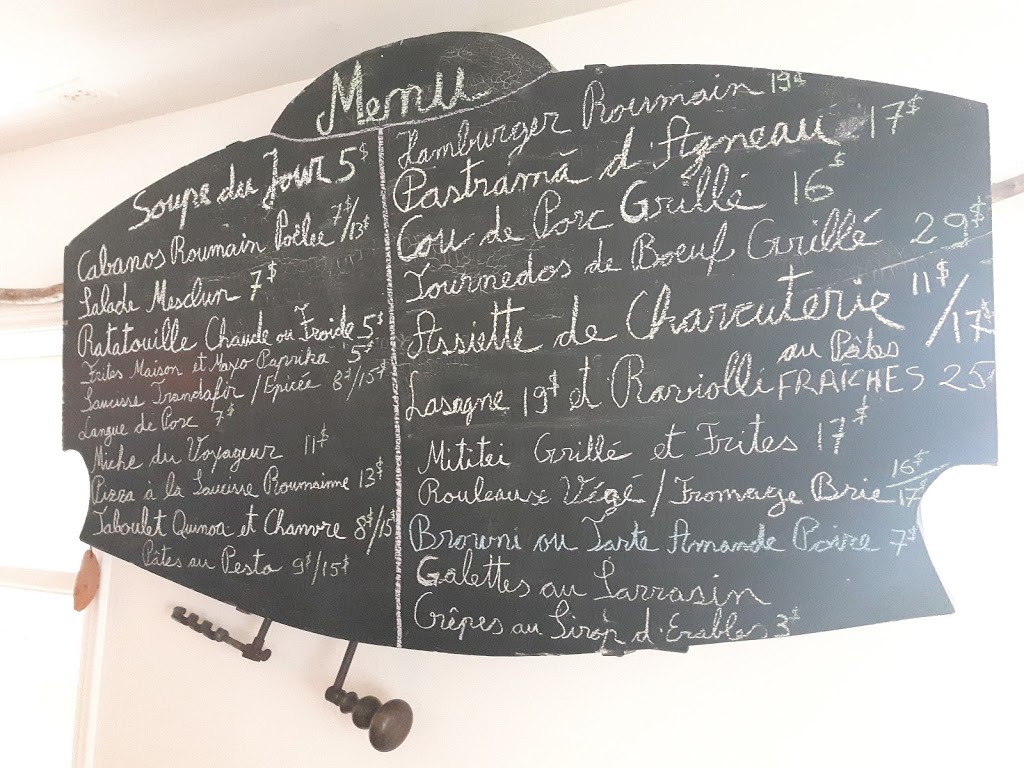 Menu
Soupe du Jour 5$
Cabanos Roumain Poêlee 7$/13$
Salade Mesclun 7$
Ratatouille Chaude ou Froide 5$
Frites Maison et Mayo Paprika 5$
Saucisse Trandafir/Epicée 8$/15$
Langue de Porc 7$
Miche du Voyageur 11$
Pizza à la Saucisse Roumaime 13$
Taboulet Quinoa et Chanvre 8$/15$
Pâtes au Pesto 9$/15$
Hamburger Roumain 19$
Pastramă d'Agneau 17$
Cou de Porc Grillé 16$
Tournedos de Boeuf Grillé 29$
Assiette de Charcuterie 11$/17$
Lasagne 19$ et Raviolli au Pâtes FRAÎCHES 25
Mititei Grillé et Frites 17$
Rouleaux Végé/Fromage Brie 16$/17$
Browni ou Tarte Amande Poire 7$
Galettes au Sarrasin
Crêpes au Sirop d'Erables 3$